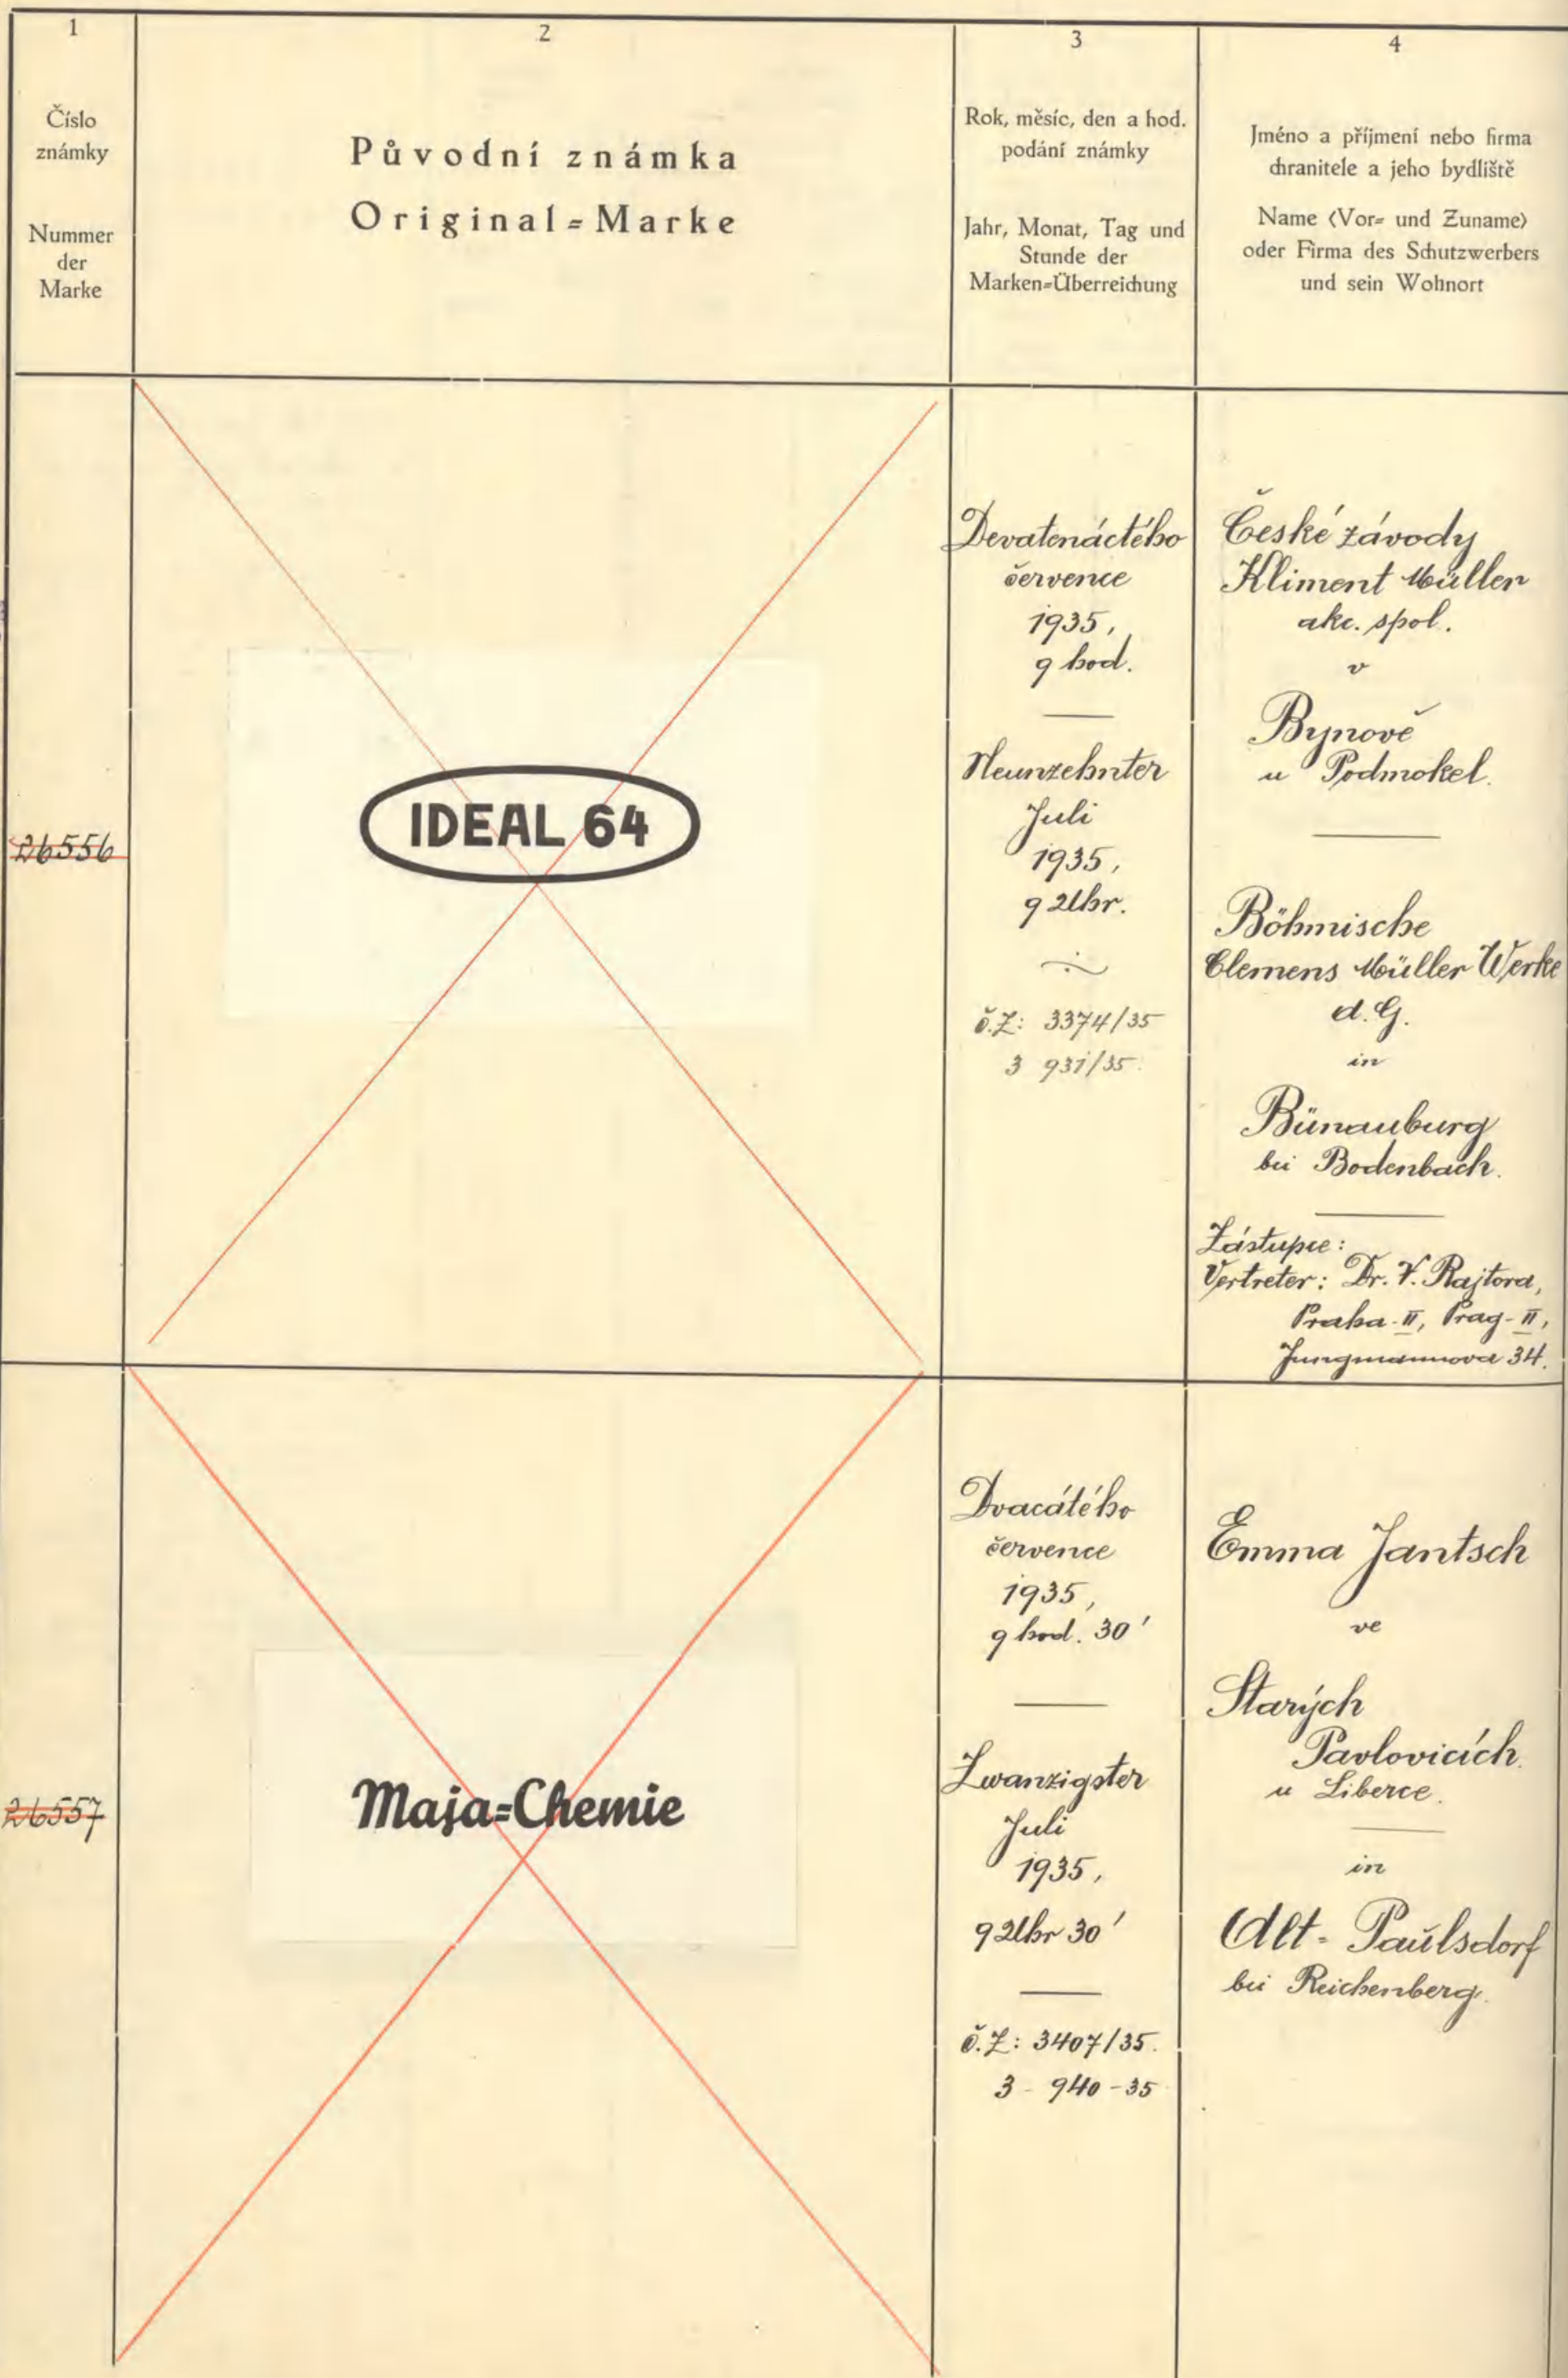 1
Číslo
známky
Nummer
der
Marke
2
Původní známka
Original=Marke
3
Rok, měsíc, den a hod.
podání známky
Jahr, Monat, Tag und
Stunde der
Marken=Überreichung
4
Jméno a příjmení nebo firma
chranitele a jeho bydliště
Name (Vor= und Zuname)
oder Firma des Schutzwerbers
und sein Wohnort
26556
IDEAL 64
Devatenáctého
července
1935,
9 hod.
Neunzehnter
Juli
1935,
9 Uhr.
č.Z: 3374/35
3 931/35.
České závody
Kliment Müller
akc. spol.
v
Bynově
u Podmokel.
Böhmische
Clemens Müller Werke
A.G.
in
Bünauburg
bei Bodenbach.
Zástupce:
Vertreter: Dr. V. Rajtora,
Praha-II, Prag-II,
Jungmannova 34.
26557
Maja=Chemie
Dvacátého
července
1935,
9 hod. 30'
Zwanzigster
Juli
1935,
9 Uhr 30'
č.Z: 3407/35.
3 - 940 - 35
Emma Jantsch
ve
Starých
Pavlovicích
u Liberce.
in
Alt- Paulsdorf
bei Reichenberg.